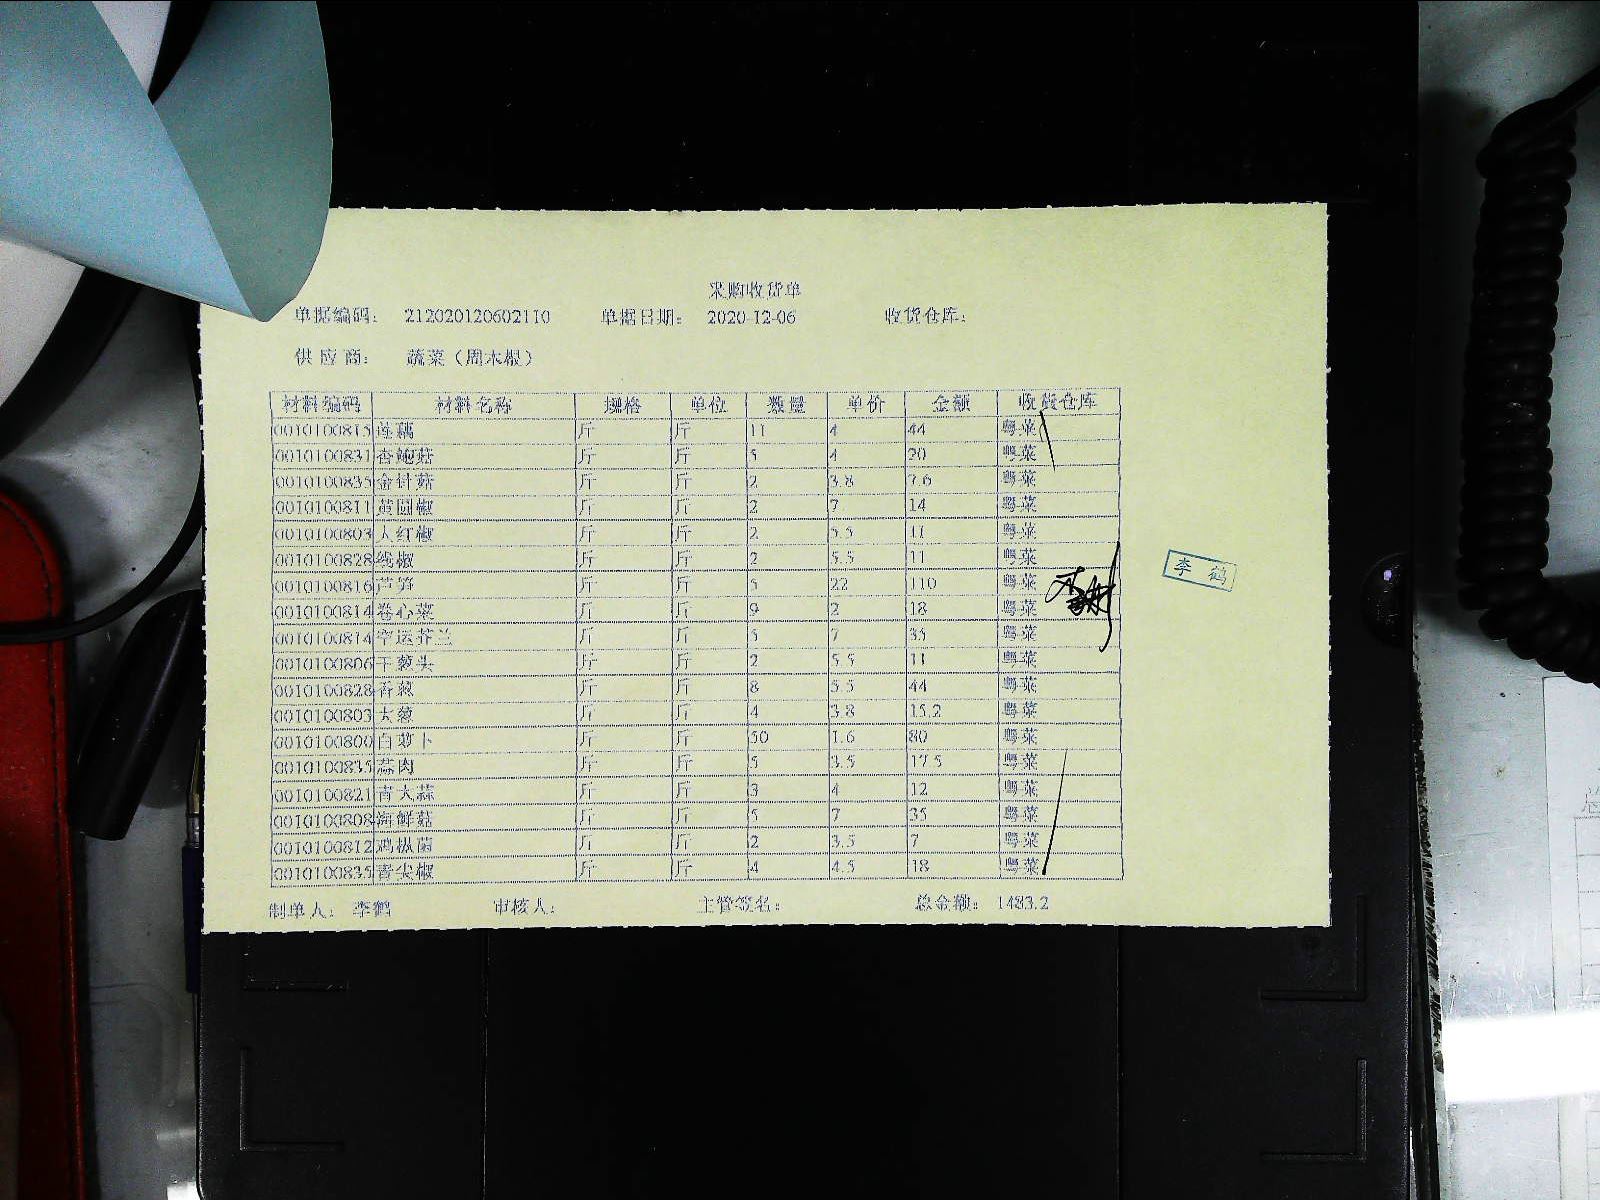 采购收货单
单据编码： 212020120602110 单据日期： 2020-12-06 收货仓库：
供应商： 蔬菜（周木根）
材料编码 材料名称 规格 单位 数量 单价 金额 收货仓库
0010100815 莲藕 斤 斤 11 4 44 粤菜
0010100831 杏鲍菇 斤 斤 5 4 20 粤菜
0010100835 金针菇 斤 斤 2 3.8 7.6 粤菜
0010100811 黄圆椒 斤 斤 2 7 14 粤菜
0010100803 大红椒 斤 斤 2 5.5 11 粤菜
0010100828 线椒 斤 斤 2 5.5 11 粤菜
0010100816 芦笋 斤 斤 5 22 110 粤菜
0010100814 卷心菜 斤 斤 9 2 18 粤菜
0010100814 空运芥兰 斤 斤 5 7 35 粤菜
0010100806 干葱头 斤 斤 2 5.5 11 粤菜
0010100828 香葱 斤 斤 8 5.5 44 粤菜
0010100803 大葱 斤 斤 4 3.8 15.2 粤菜
0010100800 白萝卜 斤 斤 50 1.6 80 粤菜
0010100835 蒜肉 斤 斤 5 3.5 17.5 粤菜
0010100821 青大蒜 斤 斤 3 4 12 粤菜
0010100808 海鲜菇 斤 斤 5 7 35 粤菜
0010100812 鸡枞菌 斤 斤 2 3.5 7 粤菜
0010100835 青尖椒 斤 斤 4 4.5 18 粤菜
李鹤
制单人： 李鹤 审核人： 主管签名： 总金额： 1483.2